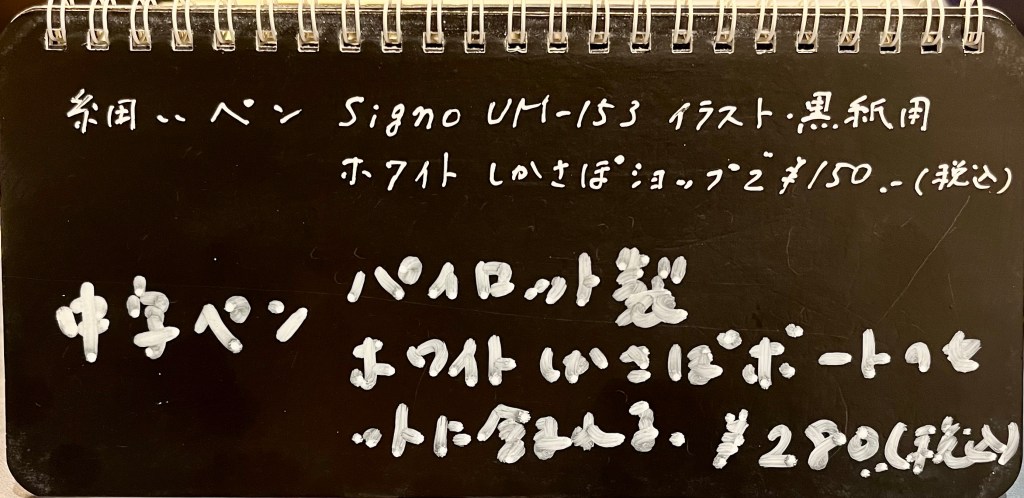 細い ペン Signo UM-153 イラスト・黒紙用
ホワイト しかさぽショップで ¥150.-(税込)
中字ペン パイロット製
ホワイト しかさぽボートのセ
ットに含まれる. ¥280.(税込)